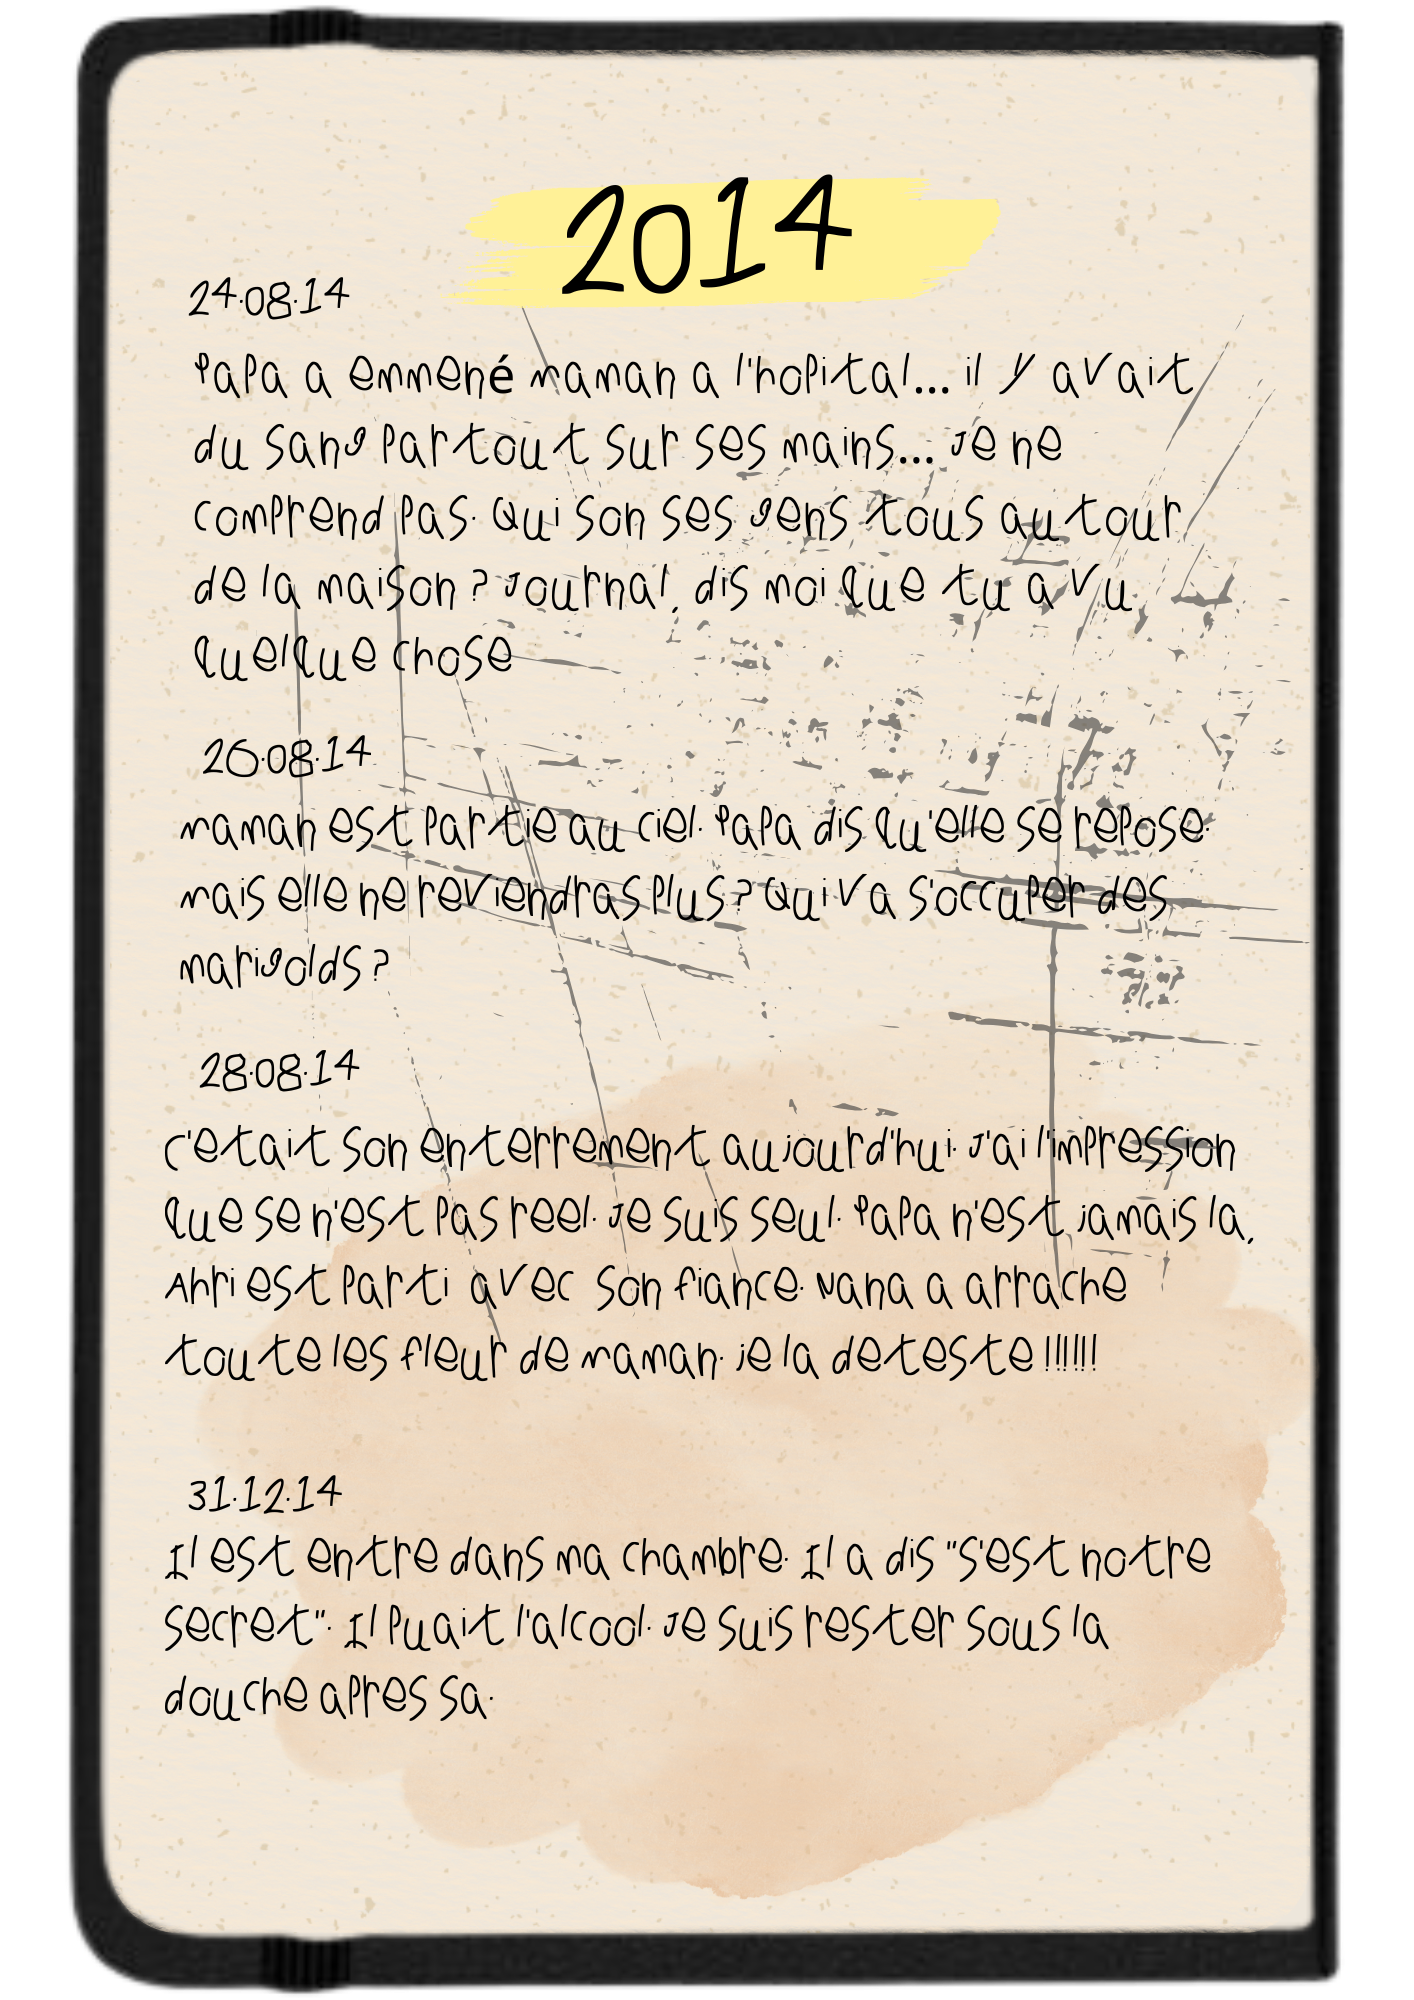 2014
24.08.14
Papa a emmené maman a l'hopital... il y avait
du sang partout sur ses mains... Je ne
comprend pas. Qui son ses gens tous autour
de la maison ? Journal, dis moi que tu a vu
quelque chose
26.08.14
maman est partie au ciel. Papa dis qu'elle se repose.
mais elle ne reviendras plus ? Qui va s'occuper des
marigolds ?
28.08.14
C'etait son enterrement aujourd'hui. J'ai l'impression
que se n'est pas reel. Je suis seul. Papa n'est jamais la,
Ahri est parti avec son fiance. Nana a arrache
toute les fleur de maman. je la deteste !!!!!!
31.12.14
Il est entre dans ma chambre. Il a dis "s'est notre
secret". Il puait l'alcool. Je suis rester sous la
douche apres sa.